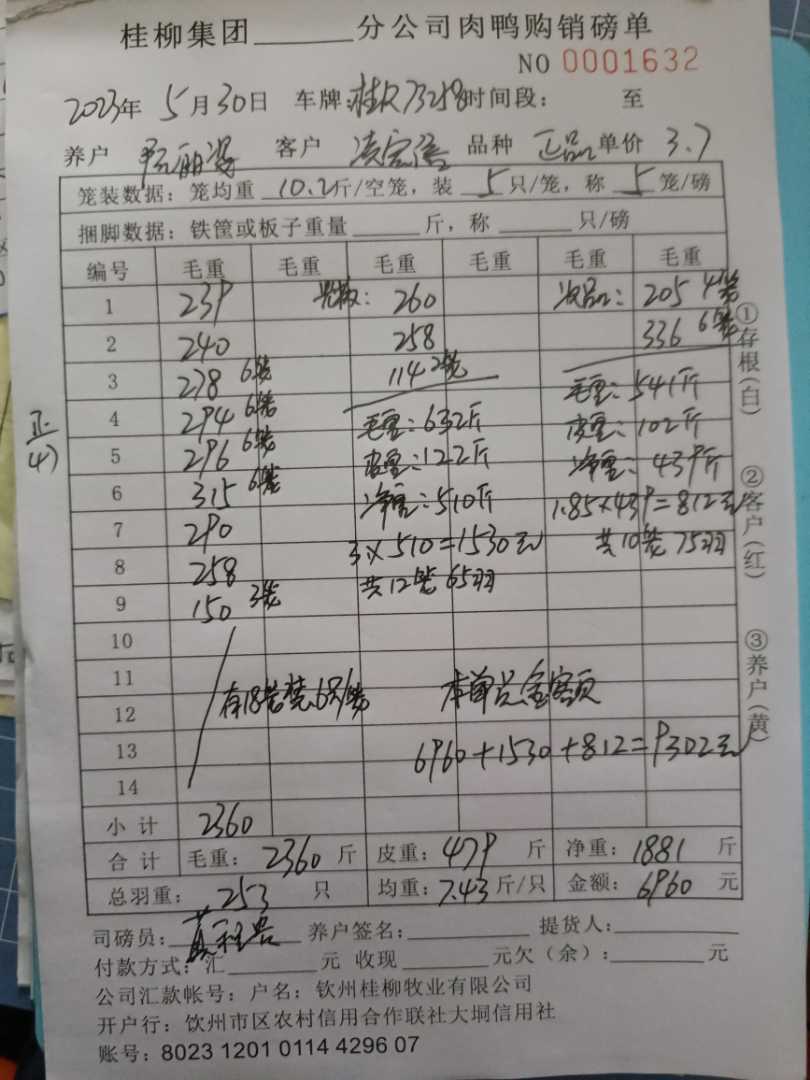 桂柳集团______分公司肉鸭购销磅单
NO 0001632
2023年 5月30日 车牌:桂R73258时间段: 至
养户 客户 品种 正品 单价 3.7
笼装数据:笼均重 10.2斤/空笼,装 5只/笼,称 5笼/磅
捆脚数据:铁筐或板子重量______斤,称______只/磅
编号 毛重 毛重 毛重 毛重 毛重 毛重
1 239 260 次品: 205 4笼
2 240 258 336 6笼
3 278 6笼 114 2笼 毛重:541斤
4 294 6笼 毛重:632斤 皮重:102斤
5 296 6笼 皮重:122斤 净重:439斤
6 315 6笼 净重:510斤 1.85×439=812元
7 290 3×510=1530元 共10笼 75羽
8 258 共12笼 65羽
9 150 3笼
10
11 有18笼装6只/笼 本单总金额
12
13 6960+1530+812=9302元
14
小计 2360
合计 毛重: 2360 斤 皮重: 479 斤 净重: 1881 斤
总羽重: 253 只 均重: 7.43 斤/只 金额: 6960 元
司磅员: 养户签名: 提货人:
付款方式:汇______元 收现______元欠(余):______元
公司汇款帐号:户名:钦州桂柳牧业有限公司
开户行:钦州市区农村信用合作联社大垌信用社
账号:8023 1201 0114 4296 07
①存根(白)
②客户(红)
③养户(黄)